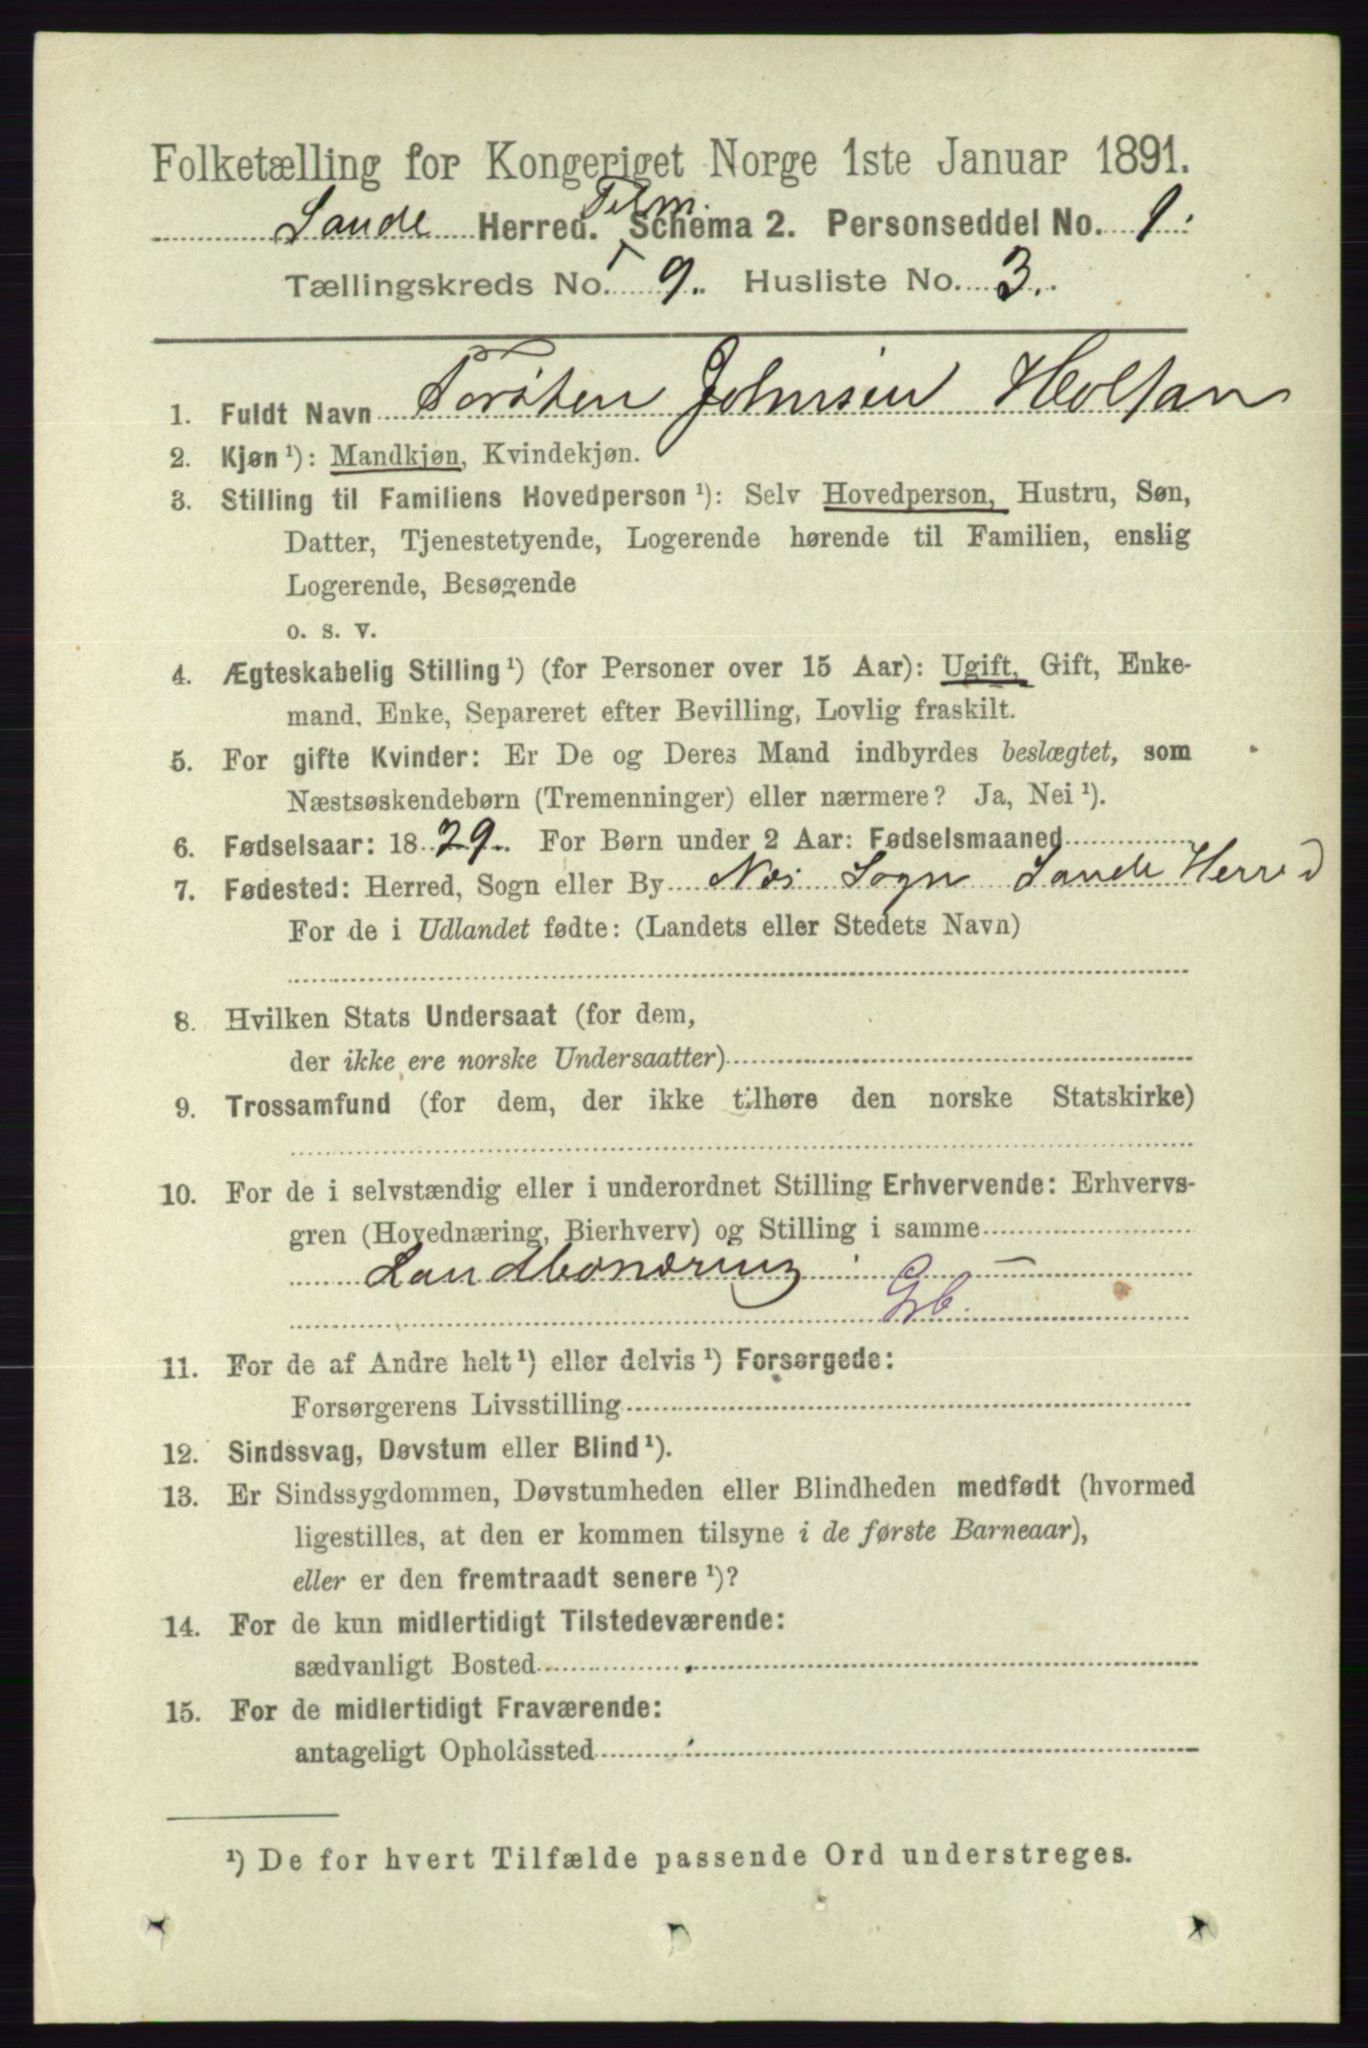 Folketælling for Kongeriget Norge 1ste Januar 1891.
Saude Herred. Telm. Schema 2. Personseddel No. 1.
Tællingskreds No. 9. Husliste No. 3.
1. Fuldt Navn Torsten Johnsen Holtan
2. Kjøn ¹): Mandkjøn, Kvindekjøn.
3. Stilling til Familiens Hovedperson ¹): Selv Hovedperson, Hustru, Søn,
Datter, Tjenestetyende, Logerende hørende til Familien, enslig
Logerende, Besøgende
o. s. v.
4. Ægteskabelig Stilling ¹) (for Personer over 15 Aar): Ugift, Gift, Enke-
mand, Enke, Separeret efter Bevilling, Lovlig fraskilt.
5. For gifte Kvinder: Er De og Deres Mand indbyrdes beslægtet, som
Næstsøskendebørn (Tremenninger) eller nærmere? Ja, Nei ¹).
6. Fødselsaar: 1829. For Børn under 2 Aar: Fødselsmaaned
7. Fødested: Herred, Sogn eller By Næs Sogn Saude Herred
For de i Udlandet fødte: (Landets eller Stedets Navn)
8. Hvilken Stats Undersaat (for dem,
der ikke ere norske Undersaatter)
9. Trossamfund (for dem, der ikke tilhøre den norske Statskirke)
10. For de i selvstændig eller i underordnet Stilling Erhvervende: Erhvervs-
gren (Hovednæring, Bierhverv) og Stilling i samme
Landbonæring —
Gb.
11. For de af Andre helt ¹) eller delvis ¹) Forsørgede:
Forsørgerens Livsstilling
12. Sindssvag, Døvstum eller Blind ¹).
13. Er Sindssygdommen, Døvstumheden eller Blindheden medfødt (hvormed
ligestilles, at den er kommen tilsyne i de første Barneaar),
eller er den fremtraadt senere ¹)?
14. For de kun midlertidigt Tilstedeværende:
sædvanligt Bosted
15. For de midlertidigt Fraværende:
antageligt Opholdssted
¹) De for hvert Tilfælde passende Ord understreges.